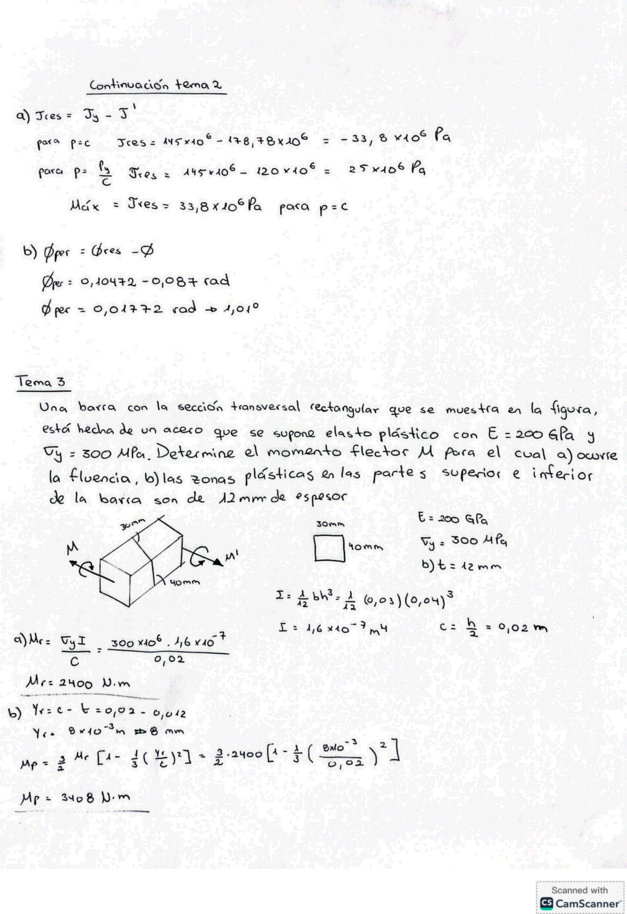 Continuación tema 2
a) Jres = Jy - J'
para p=c Jres = 145×10⁶ - 178,78×10⁶ = -33,8×10⁶ Pa
para p= ρy/c Jres = 145×10⁶ - 120×10⁶ = 25×10⁶ Pa
Máx = Jres = 33,8×10⁶ Pa para p=c
b) Øper = Øres - Ø
Øper = 0,10472 - 0,087 rad
Øper = 0,01772 rad → 1,01°
Tema 3
Una barra con la sección transversal rectangular que se muestra en la figura,
está hecha de un acero que se supone elasto plástico con E = 200 GPa y
σy = 300 MPa. Determine el momento flector M para el cual a) ocurre
la fluencia, b) las zonas plásticas en las partes superior e inferior
de la barra son de 12mm de espesor
30mm
M
M'
40mm
30mm
40mm
E = 200 GPa
σy = 300 MPa
b) t = 12 mm
I = 1/12 bh³ = 1/12 (0,03)(0,04)³
I = 1,6×10⁻⁷ m⁴ c = h/2 = 0,02 m
a) Mr = σy I / c = 300×10⁶ · 1,6×10⁻⁷ / 0,02
Mr = 2400 N·m
b) Yr = c - t = 0,02 - 0,012
Yr = 8×10⁻³ m ⇒ 8 mm
Mp = 3/2 Mr [1 - 1/3 (Yr/c)²] = 3/2 · 2400 [1 - 1/3 (8×10⁻³/0,02)²]
Mp = 3408 N·m
Scanned with
CS CamScanner